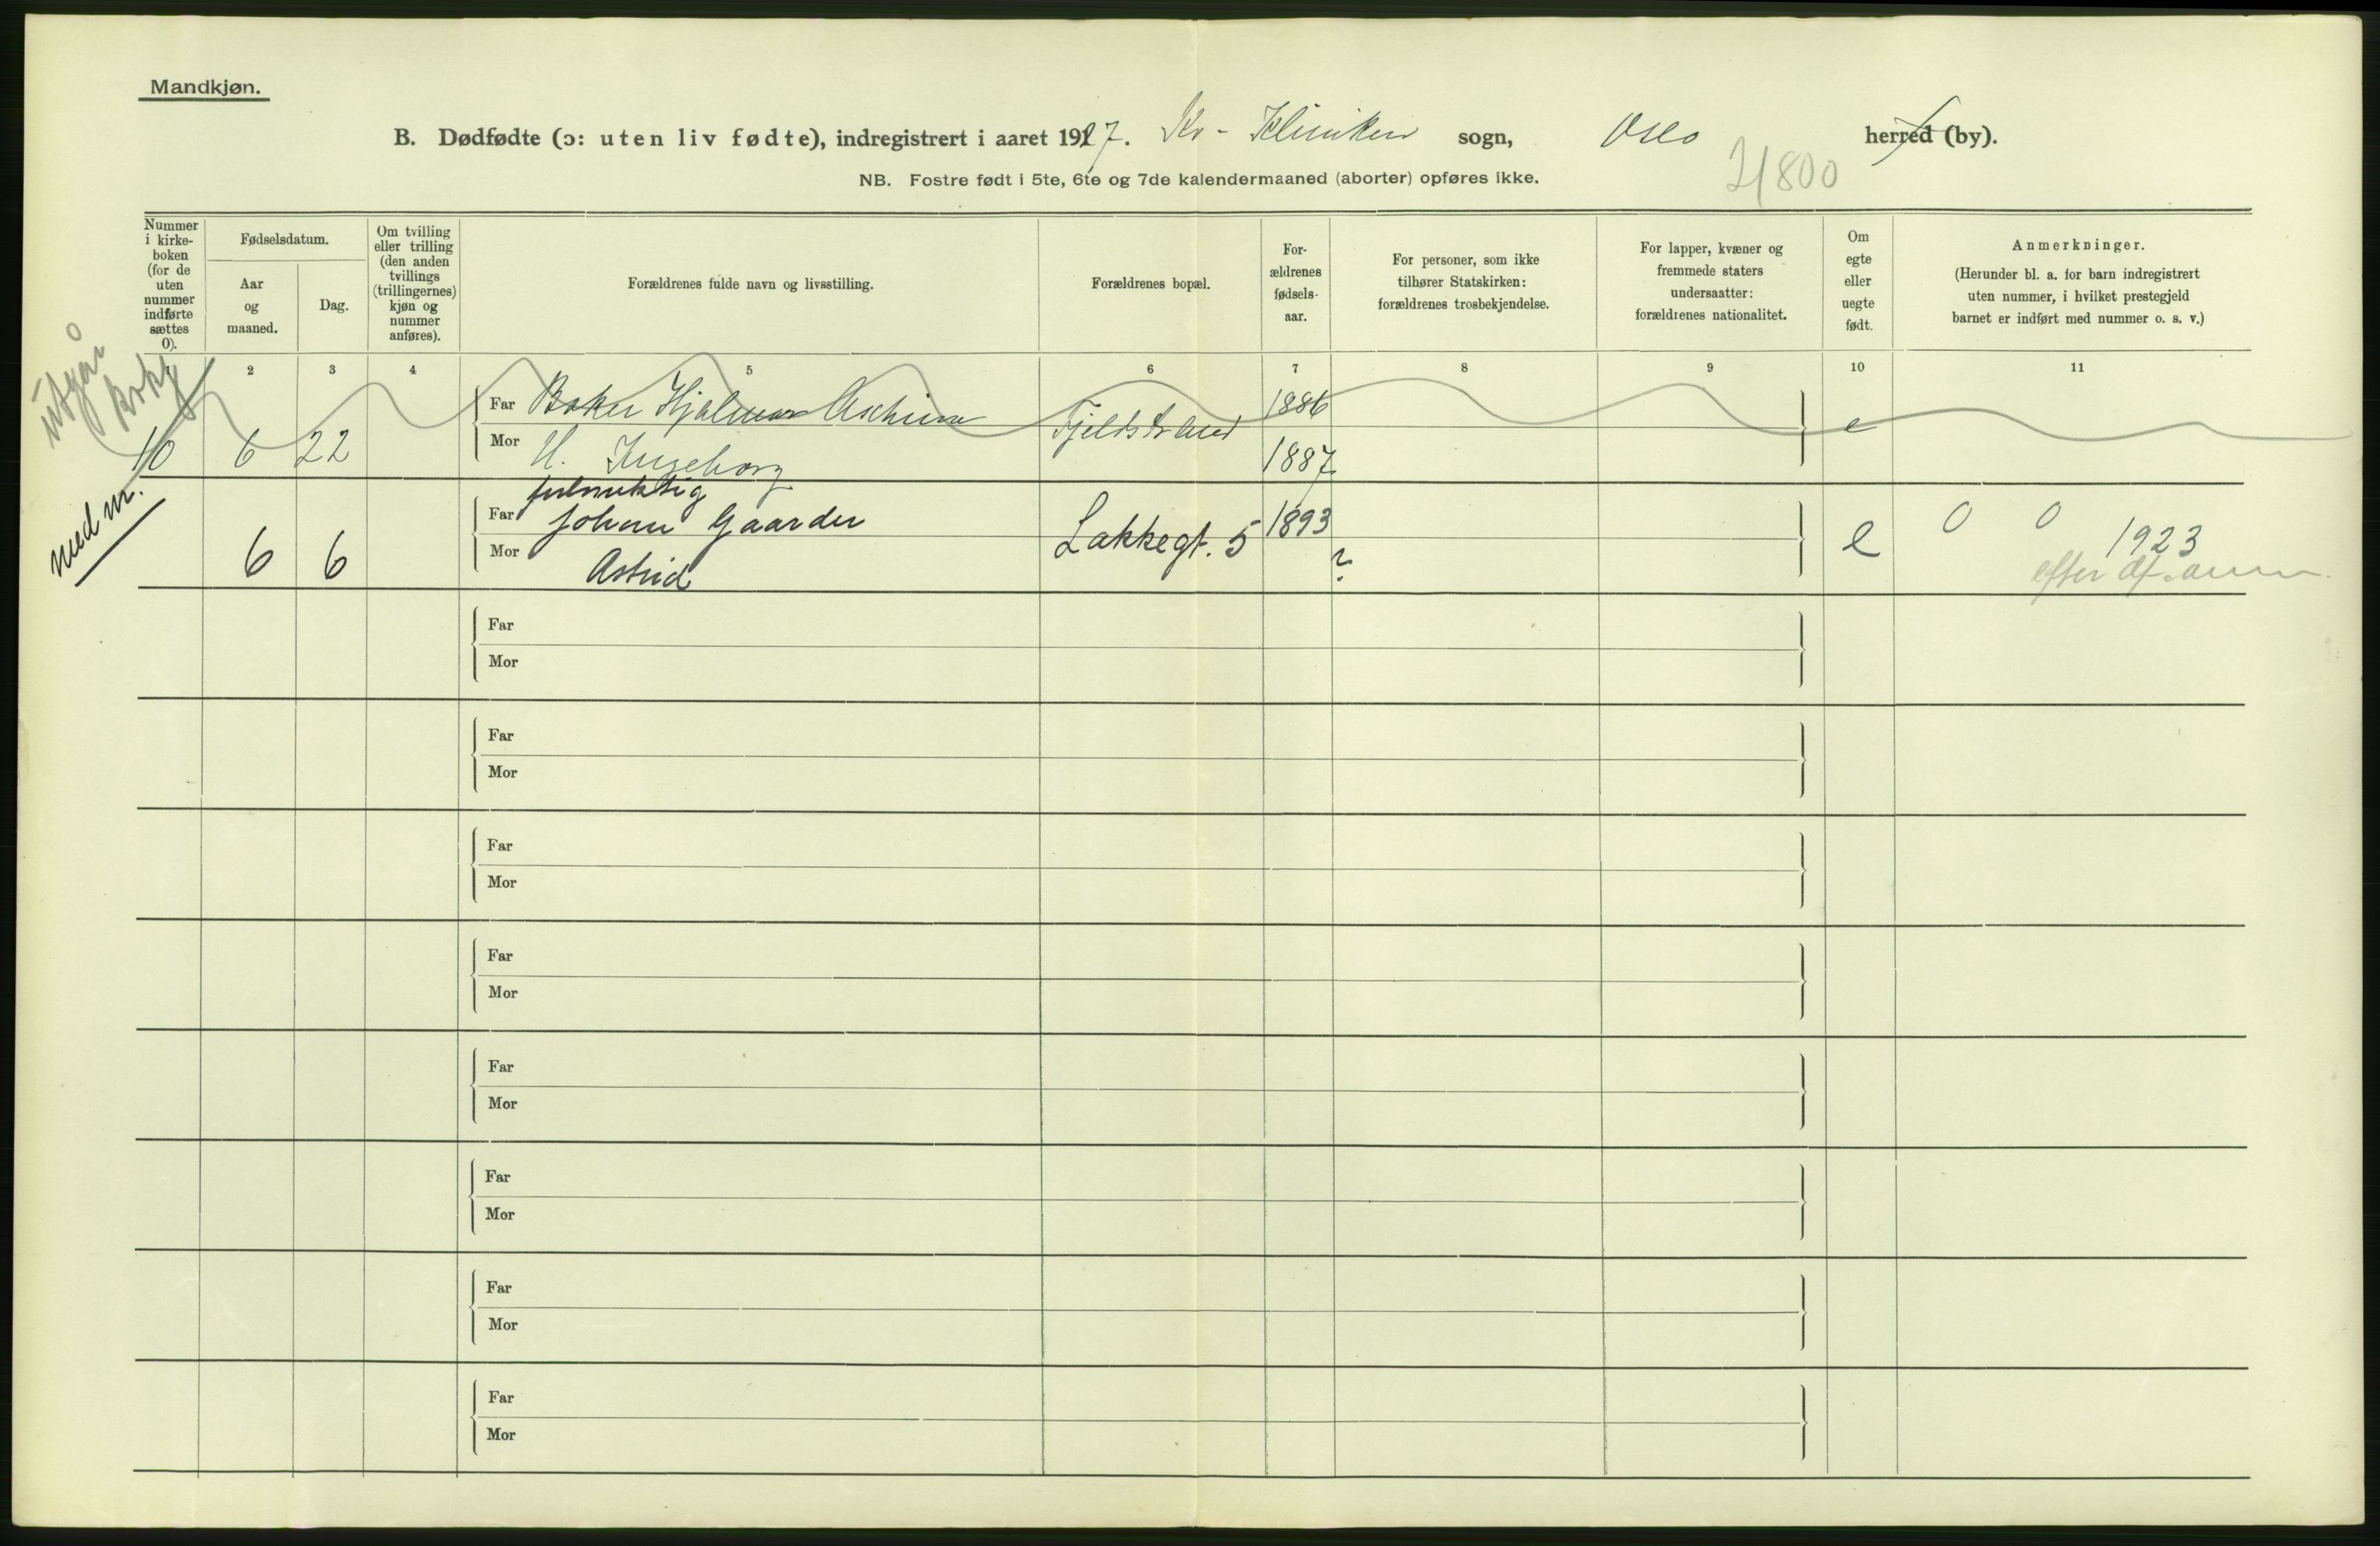 Mandkjøn.
B. Dødfødte (ɔ: uten liv fødte), indregistrert i aaret 1927. Kv-Kliniken sogn, Oslo herred (by).
21800
NB. Fostre født i 5te, 6te og 7de kalendermaaned (aborter) opføres ikke.
Nummer i kirke-boken (for de uten nummer indførte sættes 0).
Fødselsdatum.
Aar og maaned.
Dag.
Om tvilling eller trilling (den anden tvillings (trillingernes) kjøn og nummer anføres).
Forældrenes fulde navn og livsstilling.
Forældrenes bopæl.
For-ældrenes fødsels-aar.
For personer, som ikke tilhører Statskirken: forældrenes trosbekjendelse.
For lapper, kvæner og fremmede staters undersaatter: forældrenes nationalitet.
Om egte eller uegte født.
Anmerkninger.
(Herunder bl. a. for barn indregistrert uten nummer, i hvilket prestegjeld barnet er indført med nummer o. s. v.)
1 2 3 4 5 6 7 8 9 10 11
utgår
10 6 22 Far Baker Hjalmar Aschim Fjeldstrand 1886 e
Mor H. Ingeborg 1887
med nr.
fuldmektig
6 6 Far Johan Gaarder Lakkegt. 5 1893 e 0 0 1923
Mor Astrid ?
efter
Far
Mor
Far
Mor
Far
Mor
Far
Mor
Far
Mor
Far
Mor
Far
Mor
Far
Mor